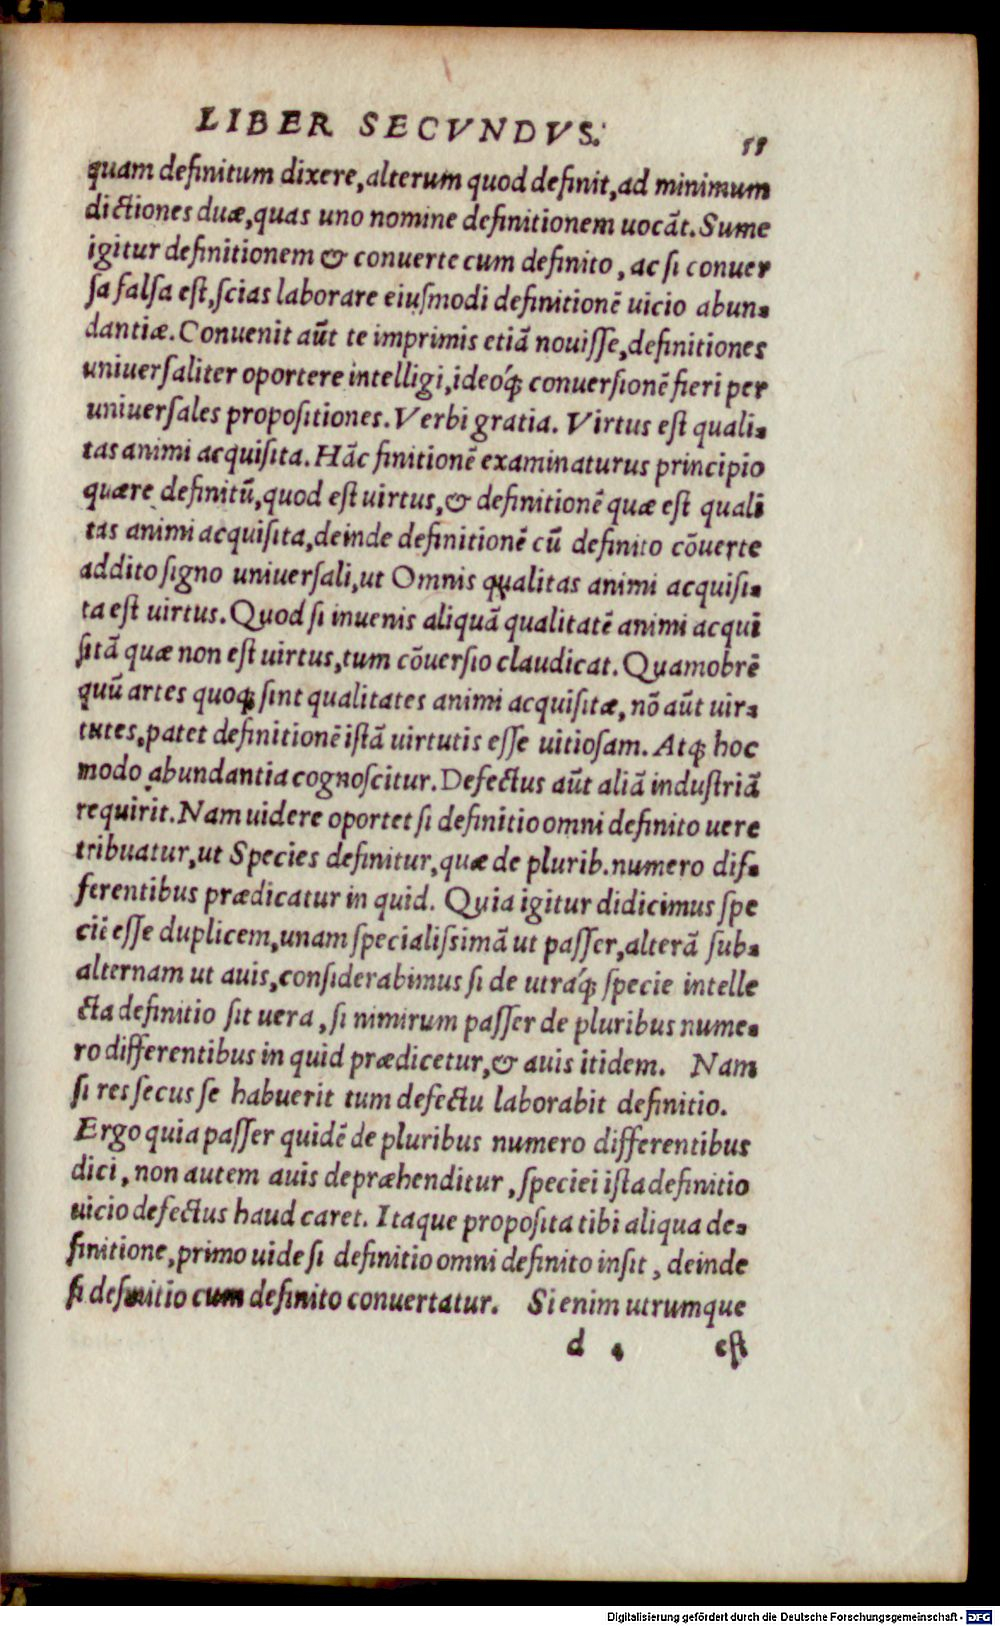 LIBER SECVNDVS.
55
quam definitum dixere, alterum quod definit, ad minimum
dictiones duæ, quas uno nomine definitionem uocãt. Sume
igitur definitionem & conuerte cum definito, ac si conuer
sa falsa est, scias laborare eiusmodi definitionẽ uicio abun-
dantiæ. Conuenit aũt te imprimis etiã nouisse, definitiones
uniuersaliter oportere intelligi, ideóq; conuersionẽ fieri per
uniuersales propositiones. Verbi gratia. Virtus est quali-
tas animi acquisita. Hãc finitionẽ examinaturus principio
quære definitũ, quod est uirtus, & definitionẽ quæ est quali
tas animi acquisita, deinde definitionẽ cũ definito cõuerte
addito signo uniuersali, ut Omnis qualitas animi acquisi-
ta est uirtus. Quod si inuenis aliquã qualitatẽ animi acqui
sitã quæ non est uirtus, tum cõuersio claudicat. Quamobrẽ
quũ artes quoq; sint qualitates animi acquisitæ, nõ aũt uir-
tutes, patet definitionẽ istã uirtutis esse uitiosam. Atq; hoc
modo abundantia cognoscitur. Defectus aũt aliã industriã
requirit. Nam uidere oportet si definitio omni definito uere
tribuatur, ut Species definitur, quæ de plurib. numero dif-
ferentibus prædicatur in quid. Quia igitur didicimus spe
ciẽ esse duplicem, unam specialissimã ut passer, alterã sub-
alternam ut auis, considerabimus si de utráq; specie intelle
cta definitio sit uera, si nimirum passer de pluribus nume-
ro differentibus in quid prædicetur, & auis itidem. Nam
si res secus se habuerit tum defectu laborabit definitio.
Ergo quia passer quidẽ de pluribus numero differentibus
dici, non autem auis depræhenditur, speciei ista definitio
uicio defectus haud caret. Itaque proposita tibi aliqua de-
finitione, primo uide si definitio omni definito insit, deinde
si definitio cum definito conuertatur. Si enim utrumque
d 4 est
Digitalisierung gefördert durch die Deutsche Forschungsgemeinschaft - DFG